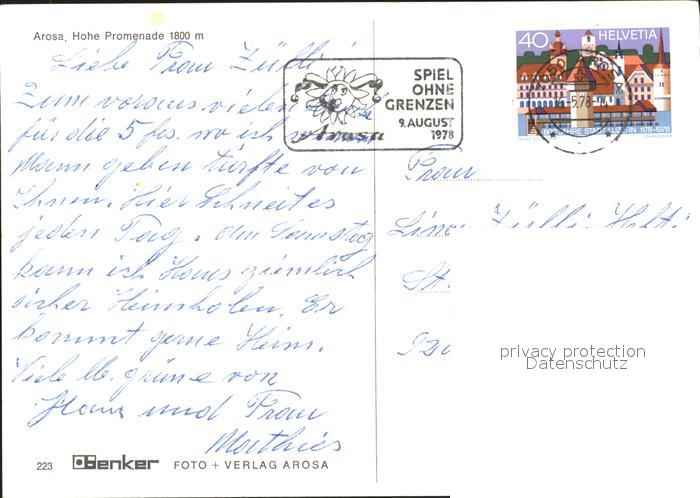 Arosa, Hohe Promenade 1800 m
Liebe Frau Züllli
Zum voraus vielen
für die 5 frs. wo ich
Mann geben dürfte von
Ihnen. Hier Schneit es
jeden Tag. am Samstag
kann ich Hans ziemlich
sicher Heimholen. Er
kommt gerne Heim.
Viele lb. grüne von
Hans und Frau
Mathies
SPIEL
OHNE
GRENZEN
9. AUGUST
1978
Arosa
40 HELVETIA
800 JAHRE STADT LUZERN 1178-1978
Frau
Lina Zülli-Hefti
St.
privacy protection
Datenschutz
223 Benker FOTO + VERLAG AROSA